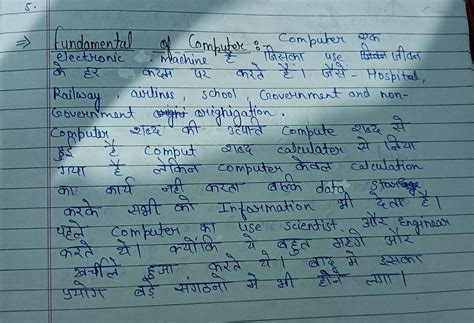 5.
⇒ Fundamental of Computer : Computer एक
electronic machine है जिसका use जीवन
के हर कदम पर करते है। जैसे - Hospital,
Railway airlines, school, Government and non-
Government arighigation.
Computer शब्द की उत्पत्ति compute शब्द से
हुई है comput शब्द calculater से लिया
गया है लेकिन computer केवल calculation
का कार्य नही करता बल्कि data storage
करके सभी को Information भी देता है।
पहले Computer का use scientist और Enginear
करते थे। क्योंकि ये बहुत महगे और
खर्चीले हुआ करते थे। बाद मे इसका
प्रयोग बड़े संगठनो मे भी होने लगा।